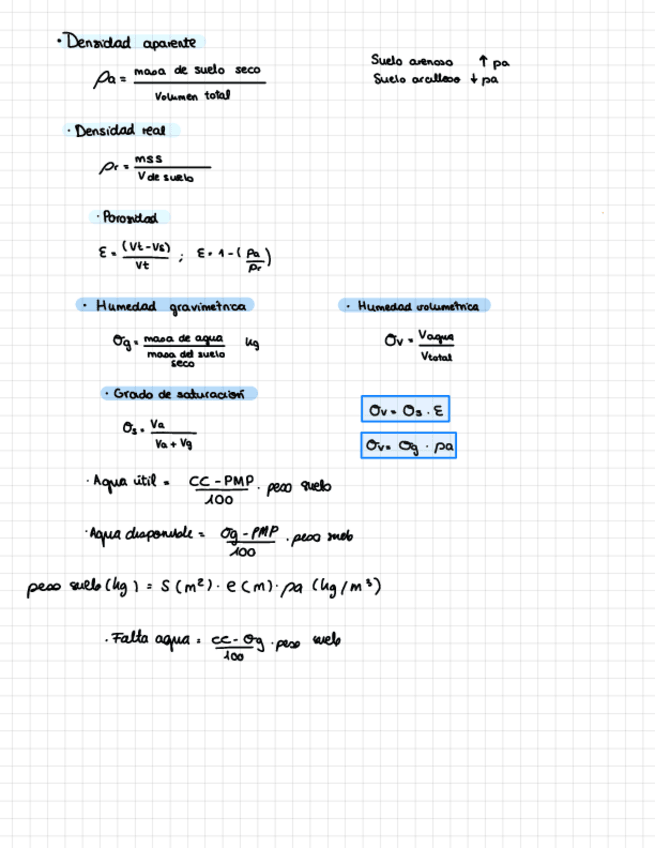 · Densidad aparente
ρa = masa de suelo seco / Volumen total
Suelo arenoso ↑ ρa
Suelo arcilloso ↓ ρa
· Densidad real
ρr = mss / V de suelo
· Porosidad
ε = (Vt-Vs) / Vt ; ε = 1 - (ρa / ρr)
· Humedad gravimétrica
θg = masa de agua / masa del suelo seco kg
· Humedad volumétrica
θv = Vagua / Vtotal
· Grado de saturación
θs = Va / Va + Vg
θv = θs · ε
θv = θg · ρa
· Agua útil = CC - PMP / 100 · peso suelo
· Agua disponible = θg - PMP / 100 · peso suelo
peso suelo (kg) = S (m²) · e (m) · ρa (kg/m³)
· Falta agua = CC - θg / 100 · peso suelo